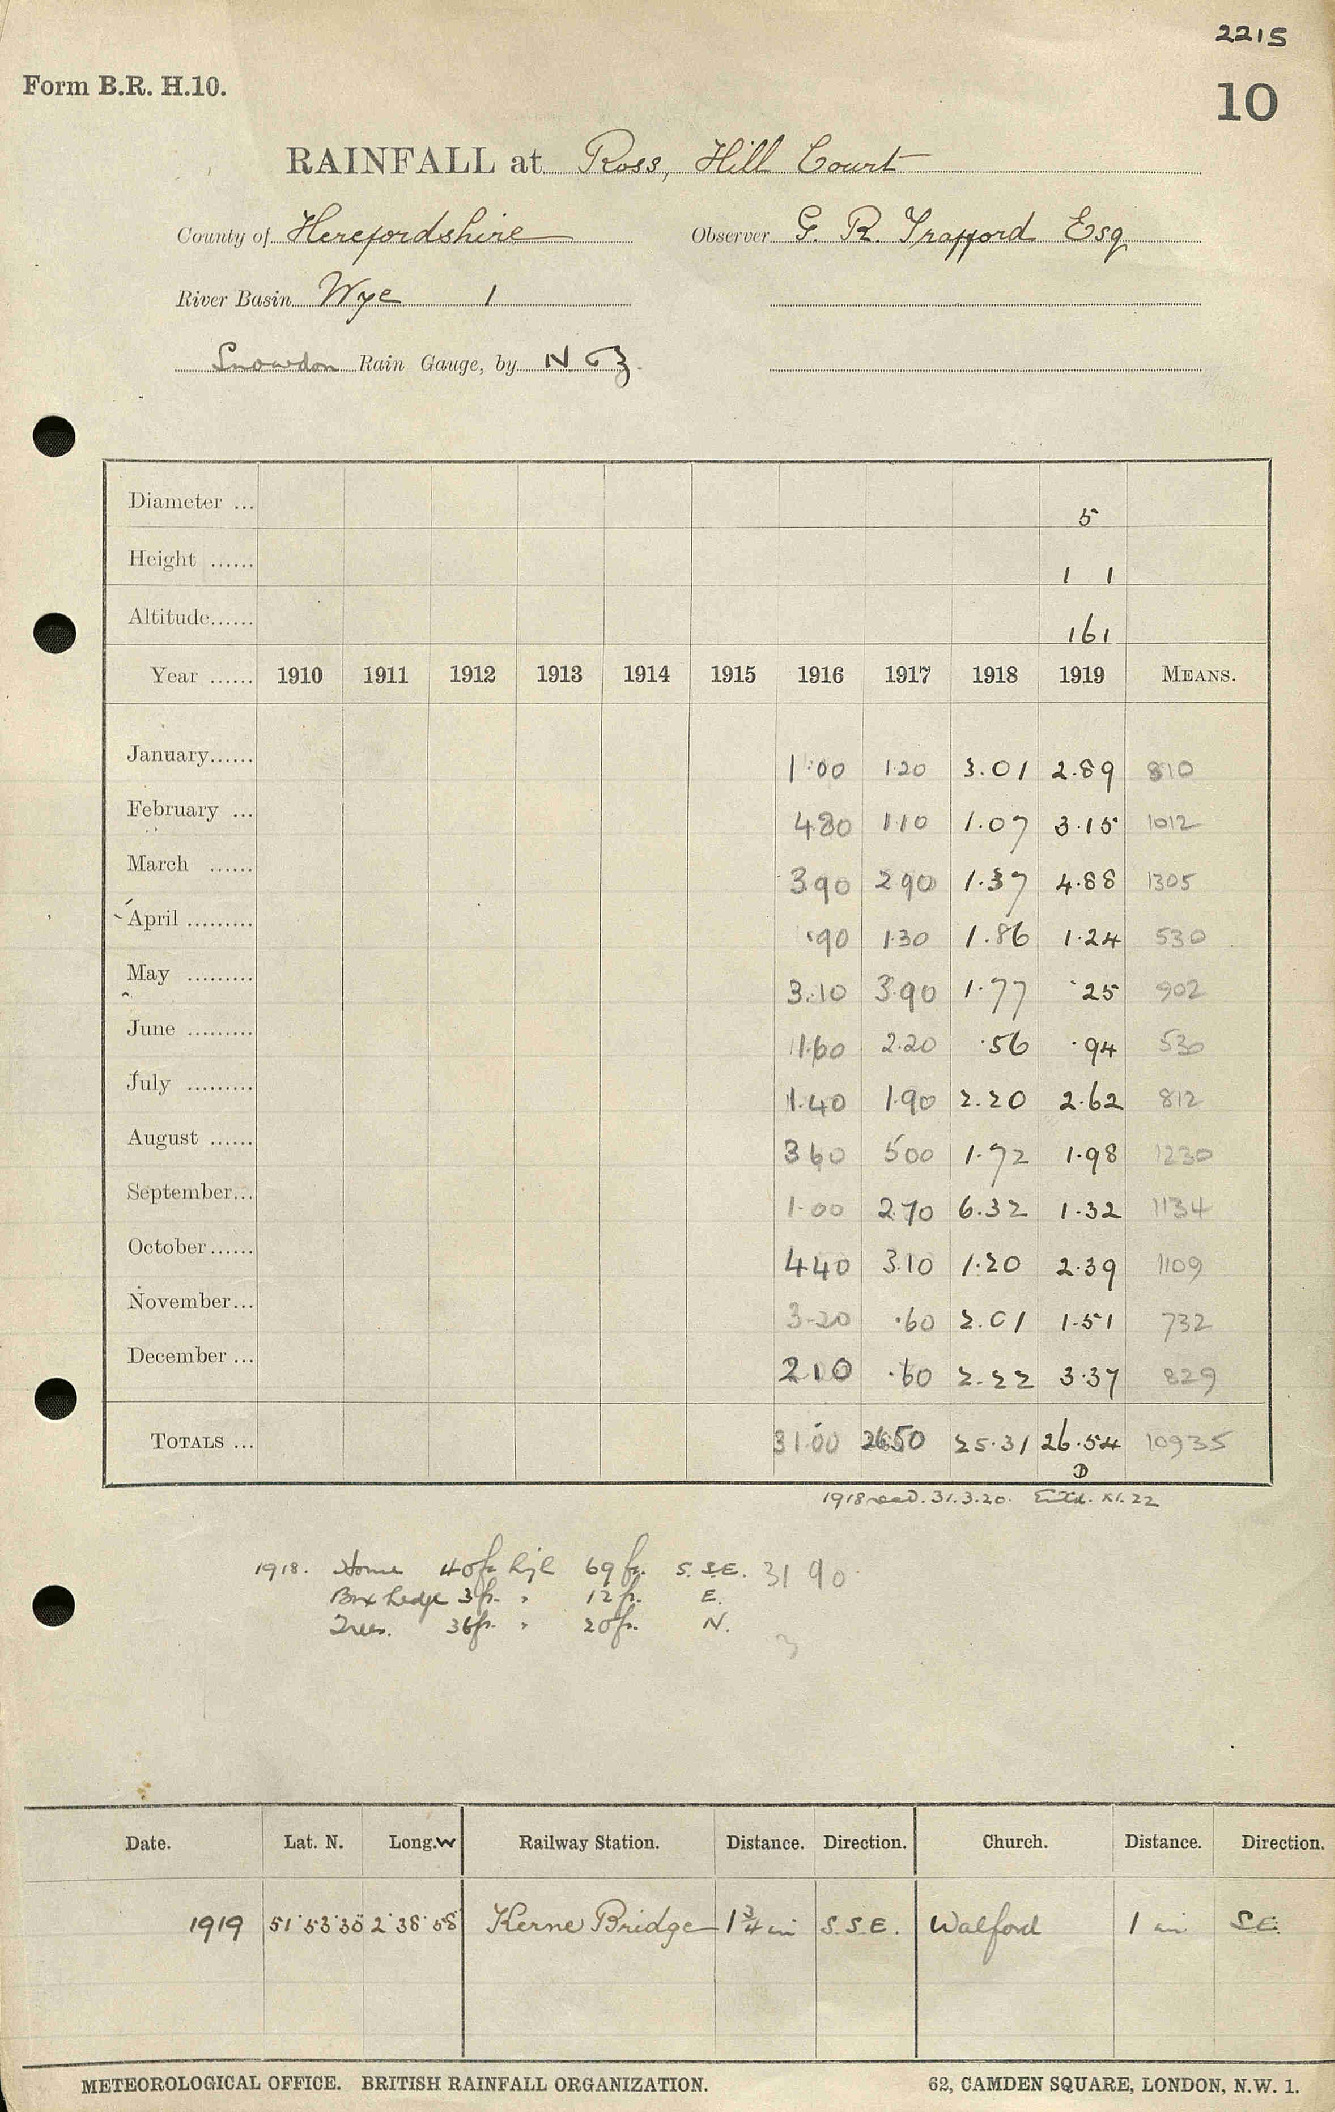 2215
Form B.R. H.10.
10
RAINFALL at Ross, Hill Court
County of Herefordshire Observer G. R. Trafford Esq
River Basin Wye 1
Snowdon Rain Gauge, by N & Z
Diameter ... 5
Height ...... 1 1
Altitude...... 161
Year ...... 1910 1911 1912 1913 1914 1915 1916 1917 1918 1919 MEANS.
January...... 1.00 1.20 3.01 2.89 810
February ... 4.80 1.10 1.07 3.15 1012
March ...... 3.90 2.90 1.37 4.88 1305
April ......... .90 1.30 1.86 1.24 530
May ......... 3.10 3.90 1.77 .25 902
June ......... 1.60 2.20 .56 .94 530
July ......... 1.40 1.90 2.20 2.62 812
August ...... 3 60 5 00 1.72 1.98 1230
September... 1.00 2.70 6.32 1.32 1134
October...... 4 40 3.10 1.20 2.39 1109
November... 3.20 .60 2.01 1.51 732
December ... 2 10 .60 2.22 3.37 829
TOTALS ... 31.00 26.50 25.31 26.54 10935
D
1918 recd. 31.3.20. Entd. XI.22
1918. Home 40ft high 69 ft. S.S.E. 31 90
Box hedge 3 ft. " 12 ft. E.
Trees. 36 ft. " 20 ft. N.
3
Date. Lat. N. Long. W Railway Station. Distance. Direction. Church. Distance. Direction.
1919 51° 53' 30" 2° 38' 58" Kerne Bridge 1 3/4 mi S.S.E. Walford 1 mi S.E.
METEOROLOGICAL OFFICE. BRITISH RAINFALL ORGANIZATION. 62, CAMDEN SQUARE, LONDON, N.W. 1.